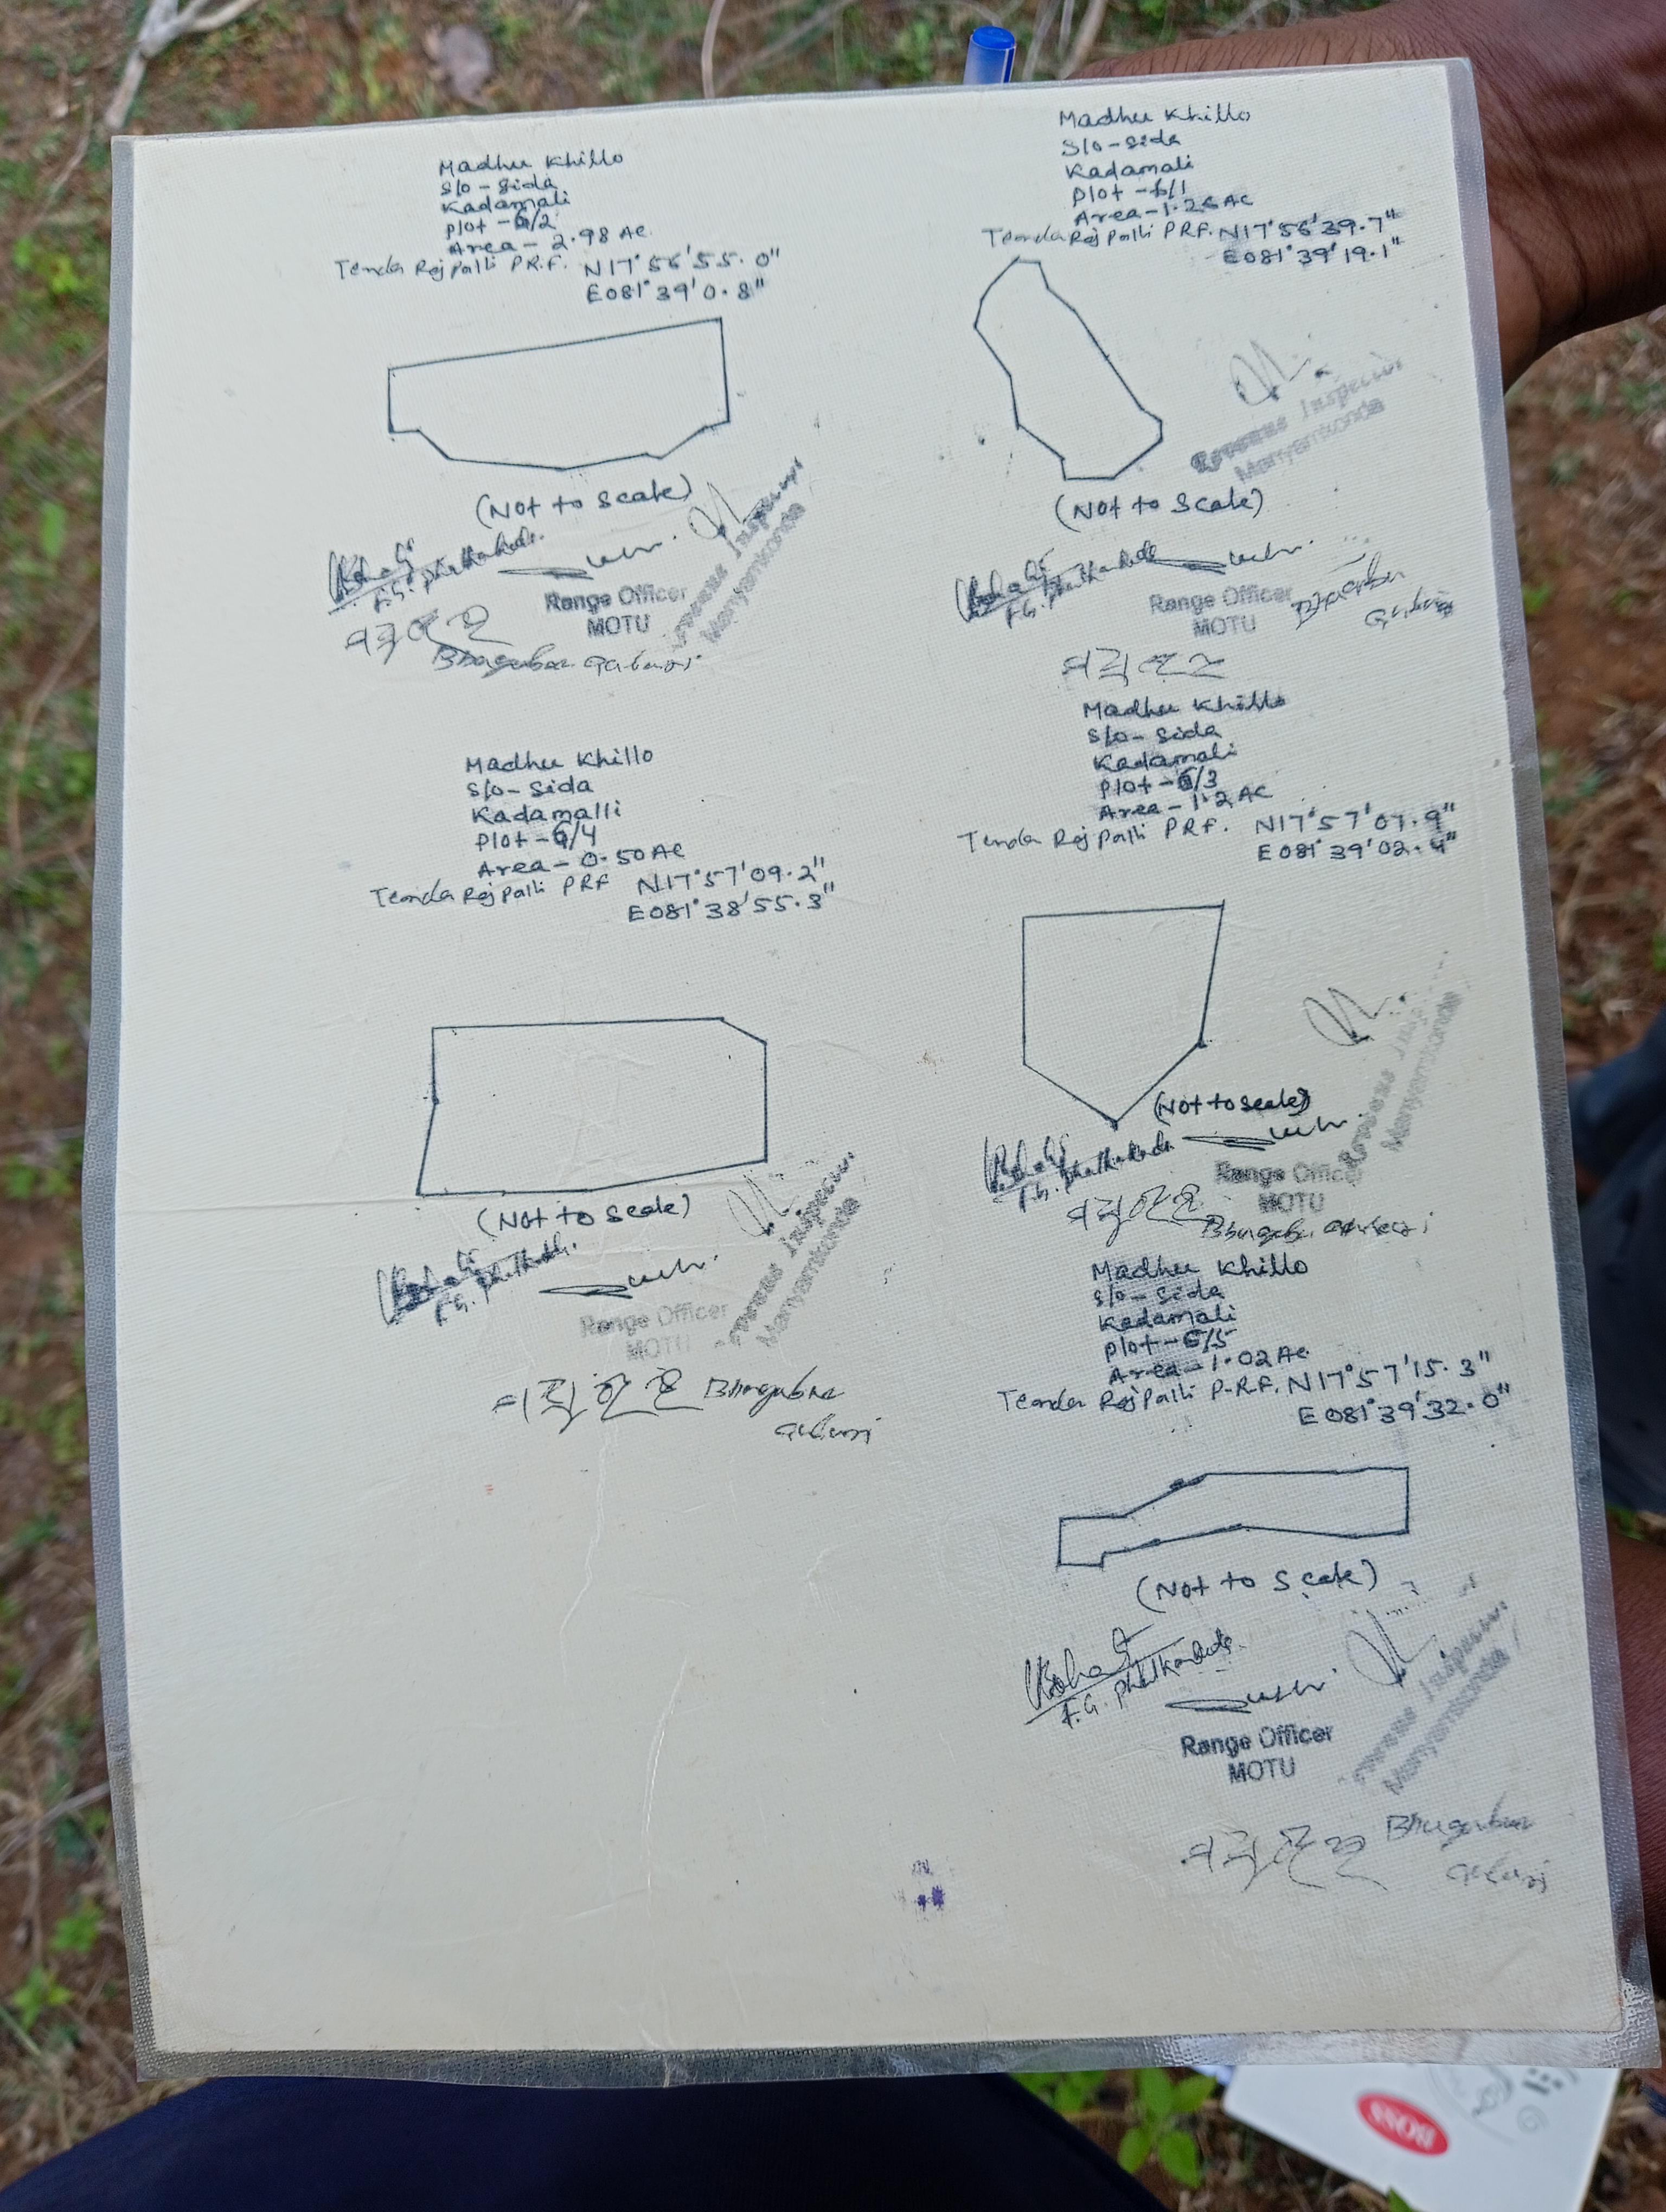 Madhu Khillo
S/o - Sida
Kadamali
Plot - 6/2
Area - 2.98 Ac.
Tenda Rajpalli P.R.F. N17°56'55.0"
E081°39'0.8"
(Not to Scale)
Range Officer
MOTU
Manyamkonda
Madhu Khillo
S/o - Sida
Kadamali
Plot - 6/1
Area - 1.26 Ac
Tenda Rajpalli P.R.F. N17°56'39.7"
E081°39'19.1"
Inspector
Manyamkonda
(Not to Scale)
Range Officer
MOTU
Madhu Khillo
S/o - Sida
Kadamalli
Plot - 6/4
Area - 0.50 Ac
Tenda Rajpalli PRF N17°57'09.2"
E081°38'55.3"
(Not to Scale)
Range Officer
MOTU
Inspector
Manyamkonda
Madhu Khillo
S/o - Sida
Kadamali
Plot - 6/3
Area - 1.2 Ac
Tenda Rajpalli PRF. N17°57'07.9"
E081°39'02.4"
(Not to Scale)
Range Officer
MOTU
Manyamkonda
Madhu Khillo
S/o - Sida
Kadamali
Plot - 6/5
Area - 1.02 Ac.
Tenda Rajpalli P.R.F. N17°57'15.3"
E081°39'32.0"
(Not to Scale)
Range Officer
MOTU
Inspector
Manyamkonda
BOSS